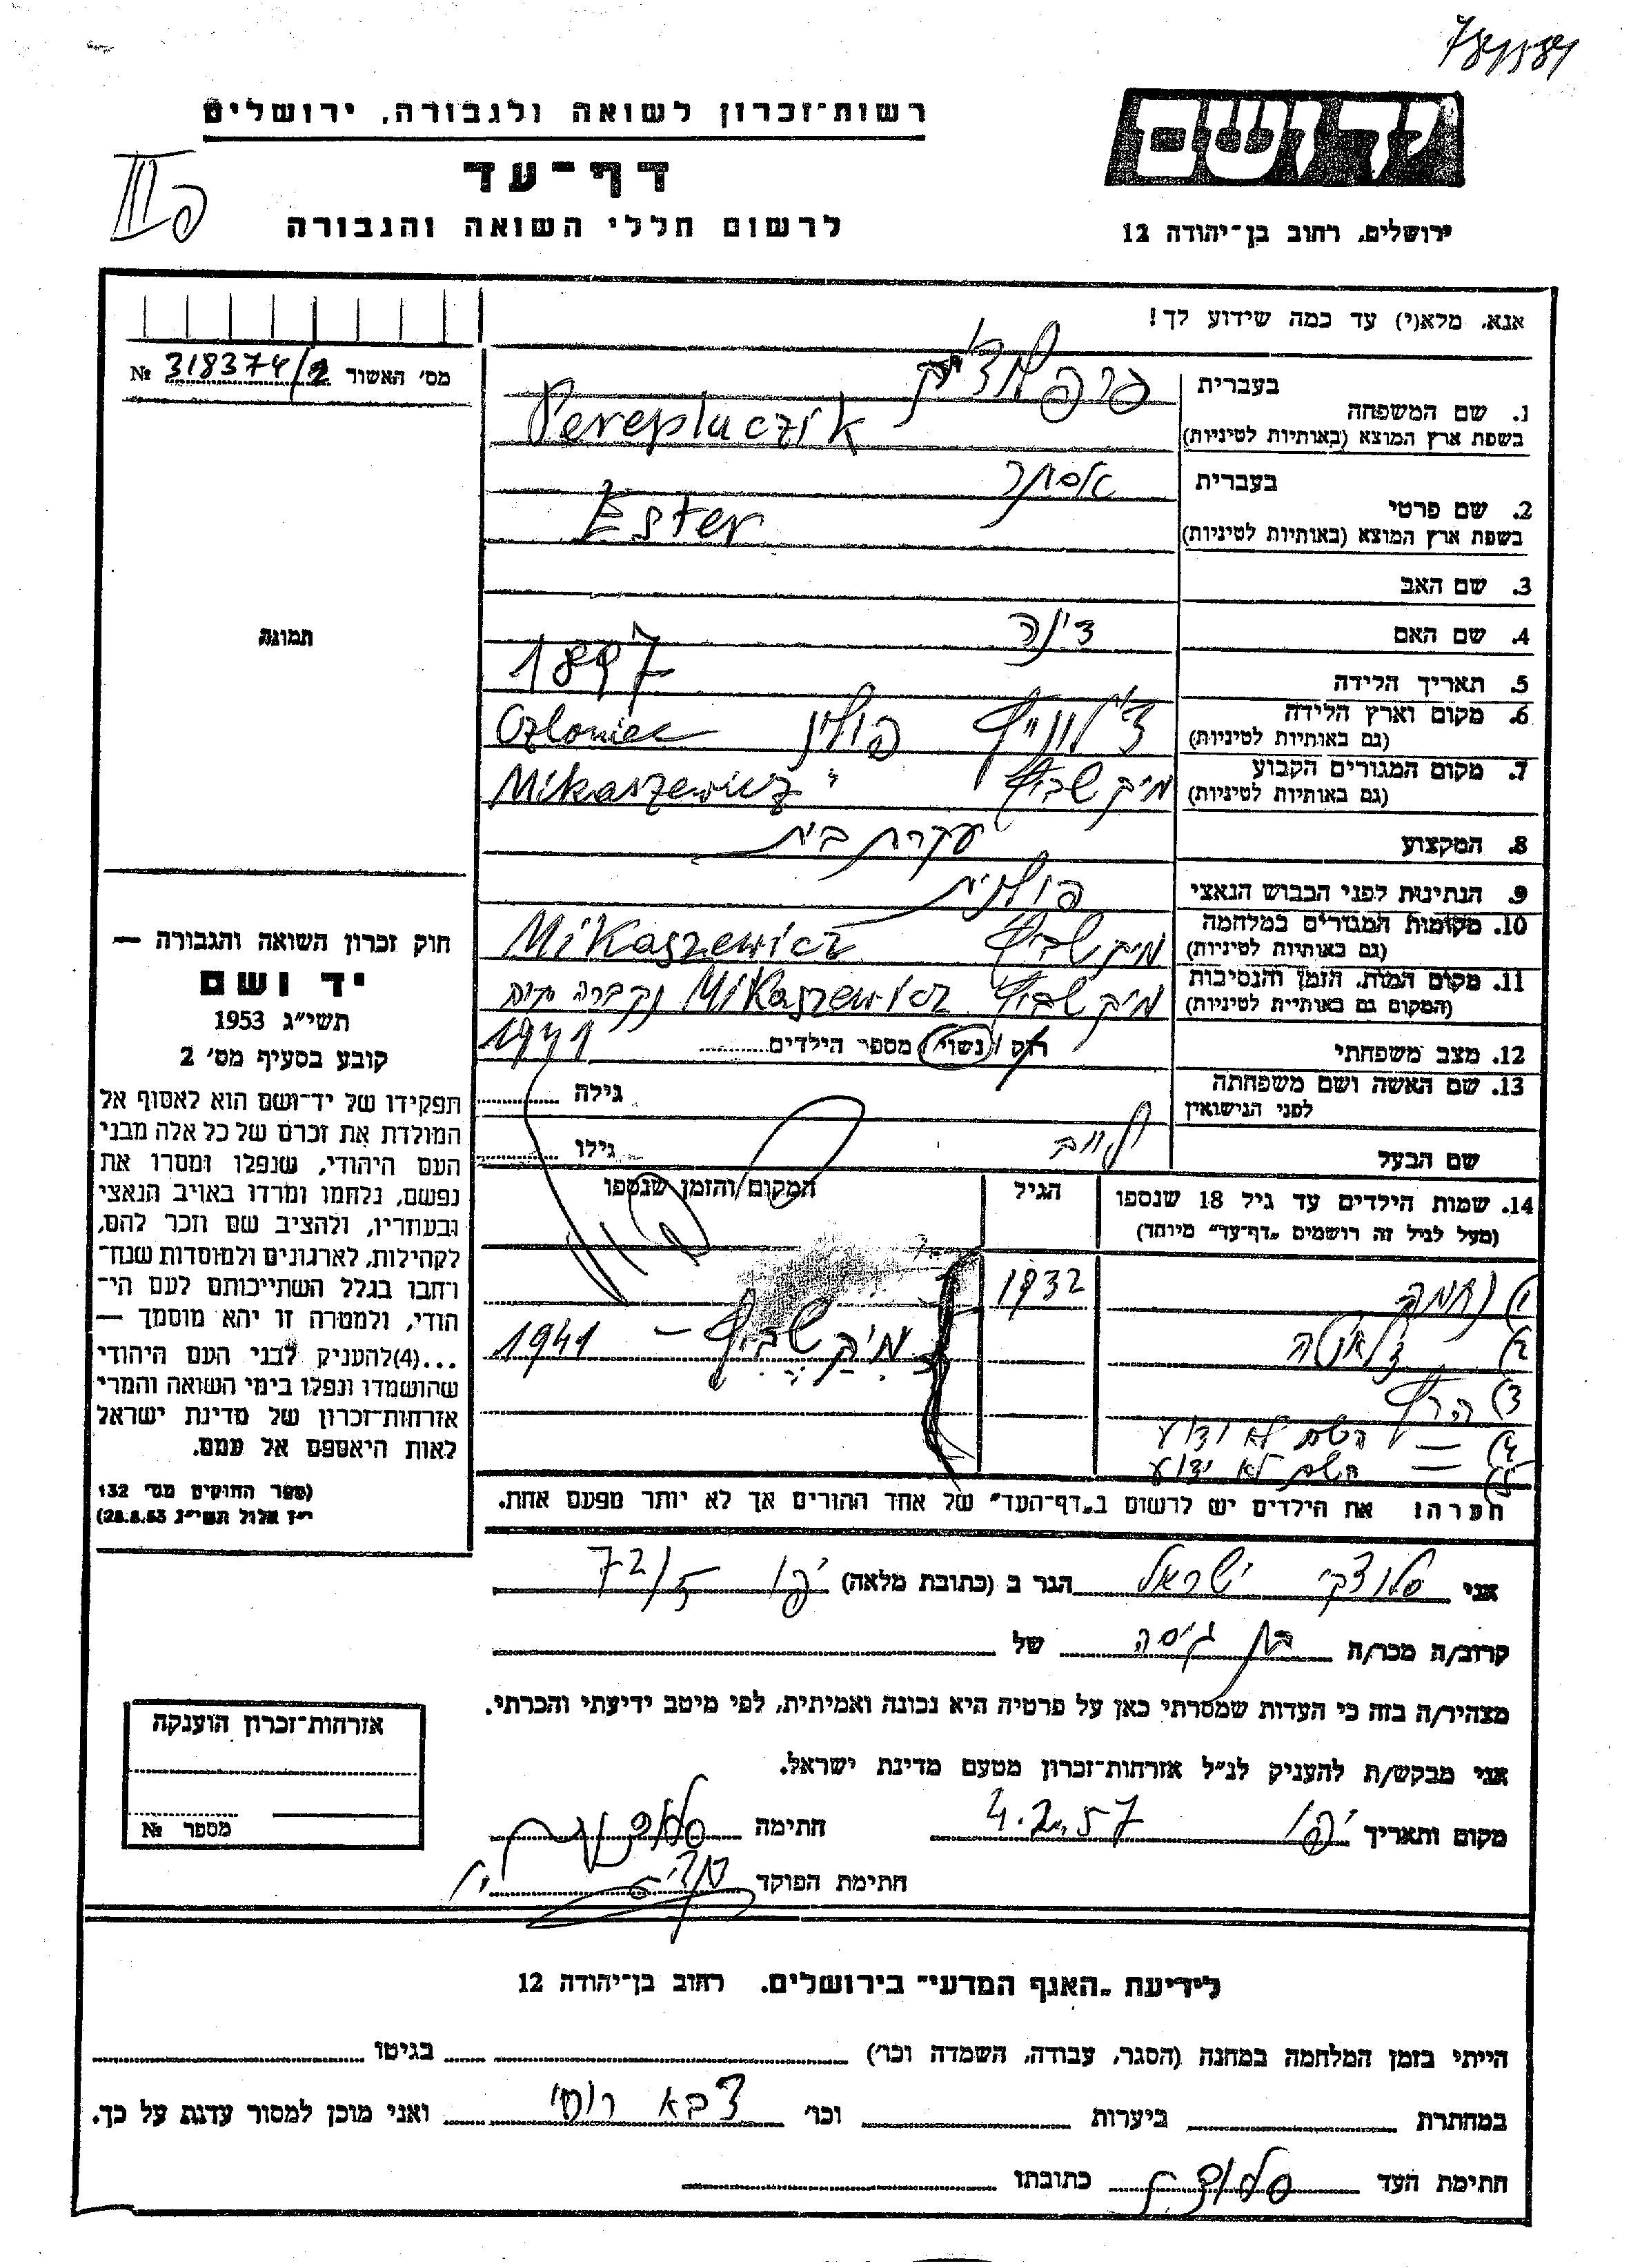 רשות־זכרון לשואה ולגבורה, ירושלים
דף־עד
לרשום חללי השואה והגבורה
יד ושם
ירושלים, רחוב בן־יהודה 12
אנא, מלא(י) עד כמה שידוע לך!
מס׳ האשור 318374/2 №
תמונה
1. שם המשפחה
בעברית
בשפת ארץ המוצא (באותיות לטיניות) Perepluczik
2. שם פרטי
בעברית אסתר
בשפת ארץ המוצא (באותיות לטיניות) Ester
3. שם האב
4. שם האם דינה
5. תאריך הלידה 1897
6. מקום וארץ הלידה פולין Czloniec
(גם באותיות לטיניות)
7. מקום המגורים הקבוע מיקשביץ " Mikaszewicz
(גם באותיות לטיניות)
8. המקצוע עקרת בית
9. הנתינות לפני הכבוש הנאצי פולנית
10. מקומות המגורים במלחמה מיקשביץ Mikaszewicz
(גם באותיות לטיניות)
11. מקום המות, הזמן והנסיבות מיקשביץ Mikaszewicz נקברה חיים
(המקום גם באותיות לטיניות)
1941
12. מצב משפחתי רוק / נשוי / מספר הילדים
13. שם האשה ושם משפחתה גילה
לפני הנישואין
שם הבעל ליוב גילו
14. שמות הילדים עד גיל 18 שנספו הגיל המקום והזמן שנספו
(מעל לגיל זה רושמים „דף־עד” מיוחד)
1) נחמה 1932
2)
מיקשביץ – 1941
3) הרץ
4) = השם לא ידוע
5) = השם לא ידוע
הערה! את הילדים יש לרשום ב„דף־העד” של אחד ההורים אך לא יותר מפעם אחת.
חוק זכרון השואה והגבורה —
יד ושם
תשי״ג 1953
קובע בסעיף מס׳ 2
תפקידו של יד־ושם הוא לאסוף אל
המולדת את זכרם של כל אלה מבני
העם היהודי, שנפלו ומסרו את
נפשם, נלחמו ומרדו באויב הנאצי
ובעוזריו, ולהציב שם וזכר להם,
לקהילות, לארגונים ולמוסדות שנח־
רחבו בגלל השתייכותם לעם הי־
הודי, ולמטרה זו יהא מוסמך —
...(4)להעניק לבני העם היהודי
שהושמדו ונפלו בימי השואה והמרי
אזרחות־זכרון של מדינת ישראל
לאות היאספם אל עמם.
(ספר החוקים מס׳ 132
י״ז אלול תשי״ג 28.8.53)
אני סלוצקי ישראל הגר ב (כתובת מלאה) יפו 72/5
קרוב/ה מכר/ה בן גיסה של
מצהיר/ה בזה כי העדות שמסרתי כאן על פרטיה היא נכונה ואמיתית, לפי מיטב ידיעתי והכרתי.
אני מבקש/ת להעניק לנ״ל אזרחות־זכרון מטעם מדינת ישראל.
מקום ותאריך יפו 4.2.57 חתימה
חתימת הפוקד
אזרחות־זכרון הוענקה
מספר №
לידיעת „האגף המדעי” בירושלים. רחוב בן־יהודה 12
הייתי בזמן המלחמה במחנה (הסגר, עבודה, השמדה וכו׳) בגיטו
במחתרת ביערות וכו׳ צבא רוסי ואני מוכן למסור עדות על כך.
חתימת העד סלוצקי כתובתו